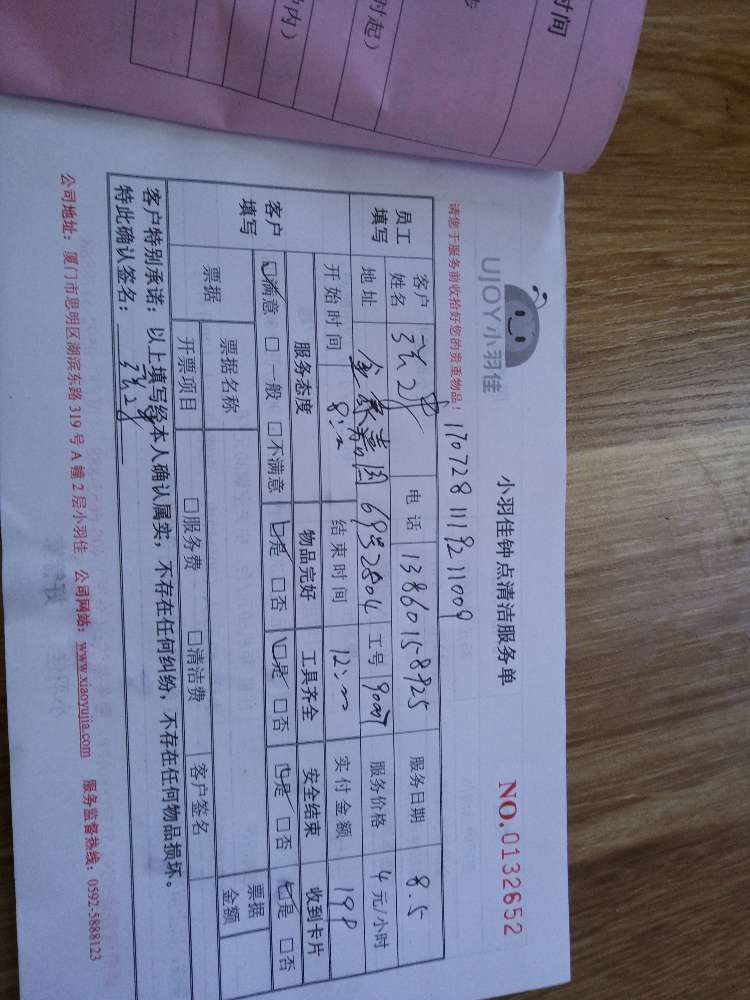 时间
时起)
内)
UJOY小羽佳
小羽佳钟点清洁服务单
NO.0132652
请您于服务前收拾好您的贵重物品!
1707281119211009
员工填写
客户姓名
电话 13860158925
服务日期 8.5
地址
工号
服务价格 4元/小时
开始时间
结束时间 12:00
实付金额
客户填写
服务态度 物品完好 工具齐全 安全结束 收到卡片
☑满意 □一般 □不满意 ☑是 □否 ☑是 □否 ☑是 □否 ☑是 □否
票据
票据名称
票据金额
开票项目 □服务费 □清洁费 客户签名
客户特别承诺:以上填写经本人确认属实,不存在任何纠纷,不存在任何物品损坏。
特此确认签名:
公司地址:厦门市思明区湖滨东路 319 号 A 幢 2 层小羽佳 公司网站:www.xiaoyujia.com 服务监督热线:0592-5888123